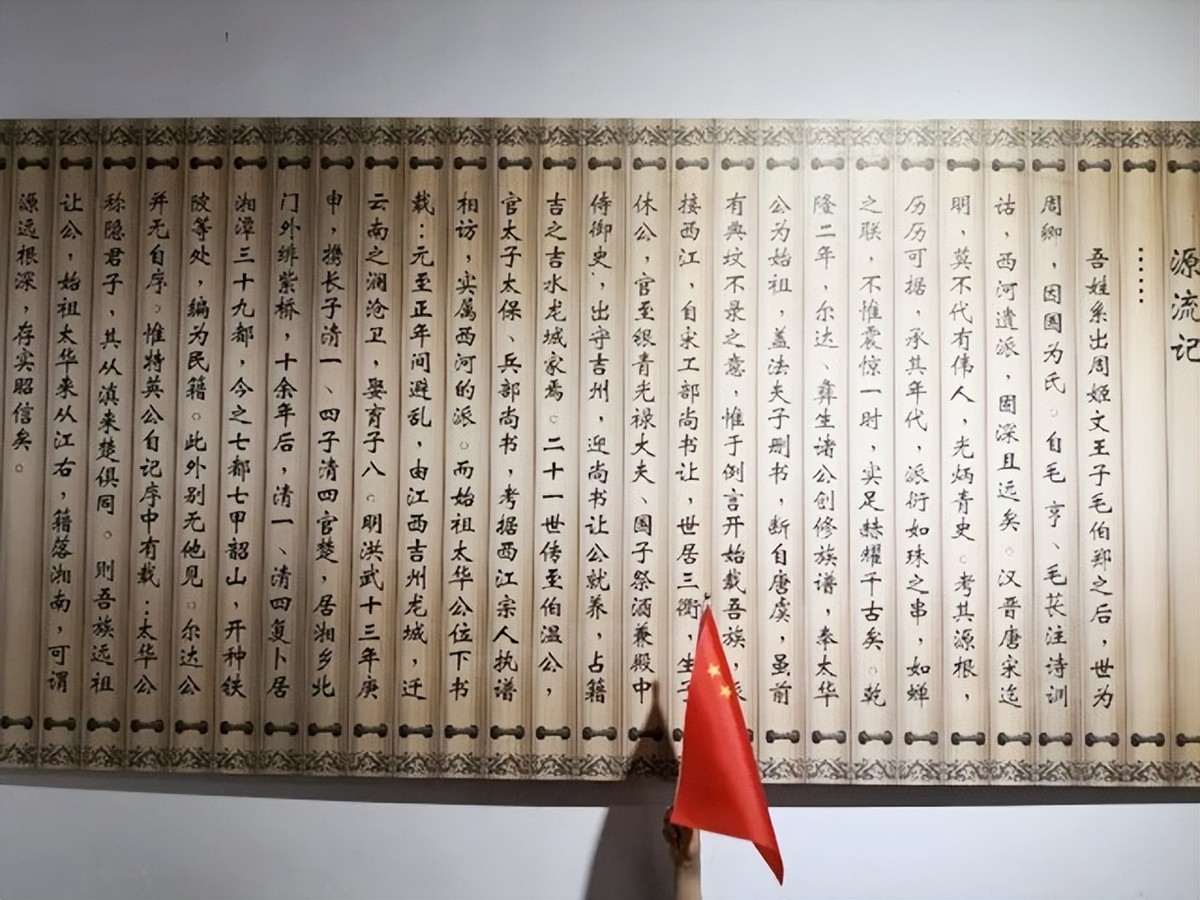 源流记
……
吾姓系出周姬文王子毛伯郑之后，世为
周卿，因国为氏。自毛亨、毛苌注诗训
诂，西河遗派，固深且远矣。汉晋唐宋迄
明，莫不代有伟人，光炳青史。考其源根，
历历可据，承其年代，派衍如珠之串，如蝉
之联，不惟震惊一时，实足赫耀千古矣。乾
隆二年，尔达、彝生诸公创修族谱，奉太华
公为始祖，盖法夫子删书，断自唐虞，虽前
有典坟不录之意，惟于例言开始载吾族，派
接西江，自宋工部尚书让，世居三衢，生子
休公，官至银青光禄大夫、国子祭酒兼殿中
侍御史，出守吉州，迎尚书让公就养，占籍
吉之吉水龙城家焉。二十一世传至伯温公，
官太子太保、兵部尚书，考据西江宗人执谱
相访，实属西河的派。而始祖太华公位下书
载：元至正年间避乱，由江西吉州龙城，迁
云南之澜沧卫，娶育子八。明洪武十三年庚
申，携长子清一、四子清四官楚，居湘乡北
门外绯紫桥，十余年后，清一、清四复卜居
湘潭三十九都，今之七都七甲韶山，开种铁
陂等处，编为民籍。此外别无他见。尔达公
并无自序。惟特英公自记序中有载：太华公
称隐君子，其从滇来楚俱同。则吾族远祖
让公，始祖太华来从江右，籍落湘南，可谓
源远根深，存实昭信矣。